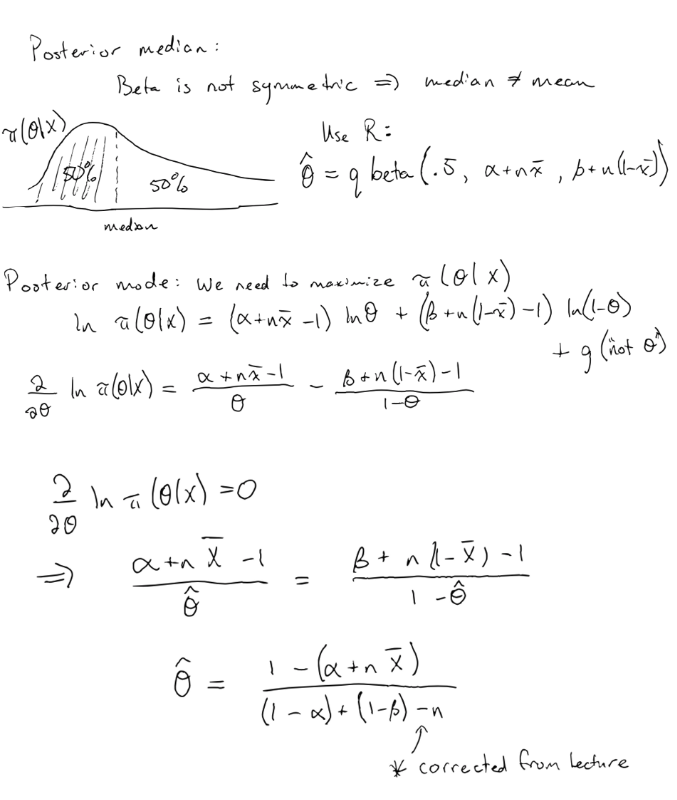 Posterior median:
Beta is not symmetric ⇒ median ≠ mean
π(θ|x)
50%
50%
median
Use R:
θ̂ = qbeta(.5, α+nx̄, β+n(1-x̄))
Posterior mode: We need to maximize π(θ|x)
ln π(θ|x) = (α+nx̄-1) lnθ + (β+n(1-x̄)-1) ln(1-θ)
+ g("not θ")
∂/∂θ ln π(θ|x) = (α+nx̄-1)/θ - (β+n(1-x̄)-1)/(1-θ)
∂/∂θ ln π(θ|x) = 0
⇒ (α+n X̄ -1)/θ̂ = (β+n(1-X̄)-1)/(1-θ̂)
θ̂ = (1-(α+n X̄))/((1-α)+(1-β)-n)
* corrected from lecture